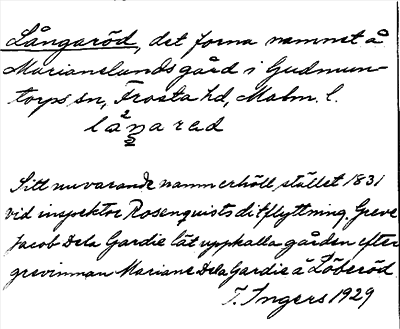 Långaröd, det forna namnet å
Marianelunds gård i Gudmun-
torps sn, Frosta hd, Malm. l.
låŋarad
Sitt nuvarande namn erhöll stället 1831
vid inspektor Rosenquists ditflyttning. Greve
Jacob De la Gardie lät uppkalla gården efter
grevinnan Mariane De la Gardie å Löberöd.
T. Ingers 1929